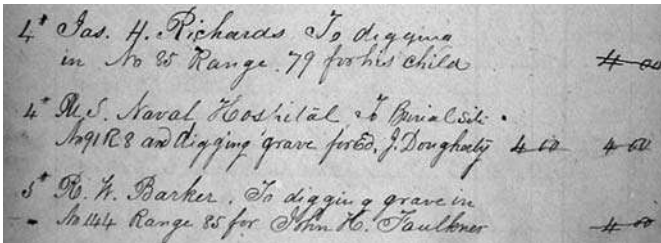 4" Jas. H. Richards To digging
in No 85 Range 79 for his child 4 00
4" U.S. Naval Hospital To Burial Site
No 91 R 8 and digging grave for Ed. J. Dougherty 4 00 4 00
5" R. W. Barker. To digging grave in
No 144 Range 85 for John H. Faulkner 4 00